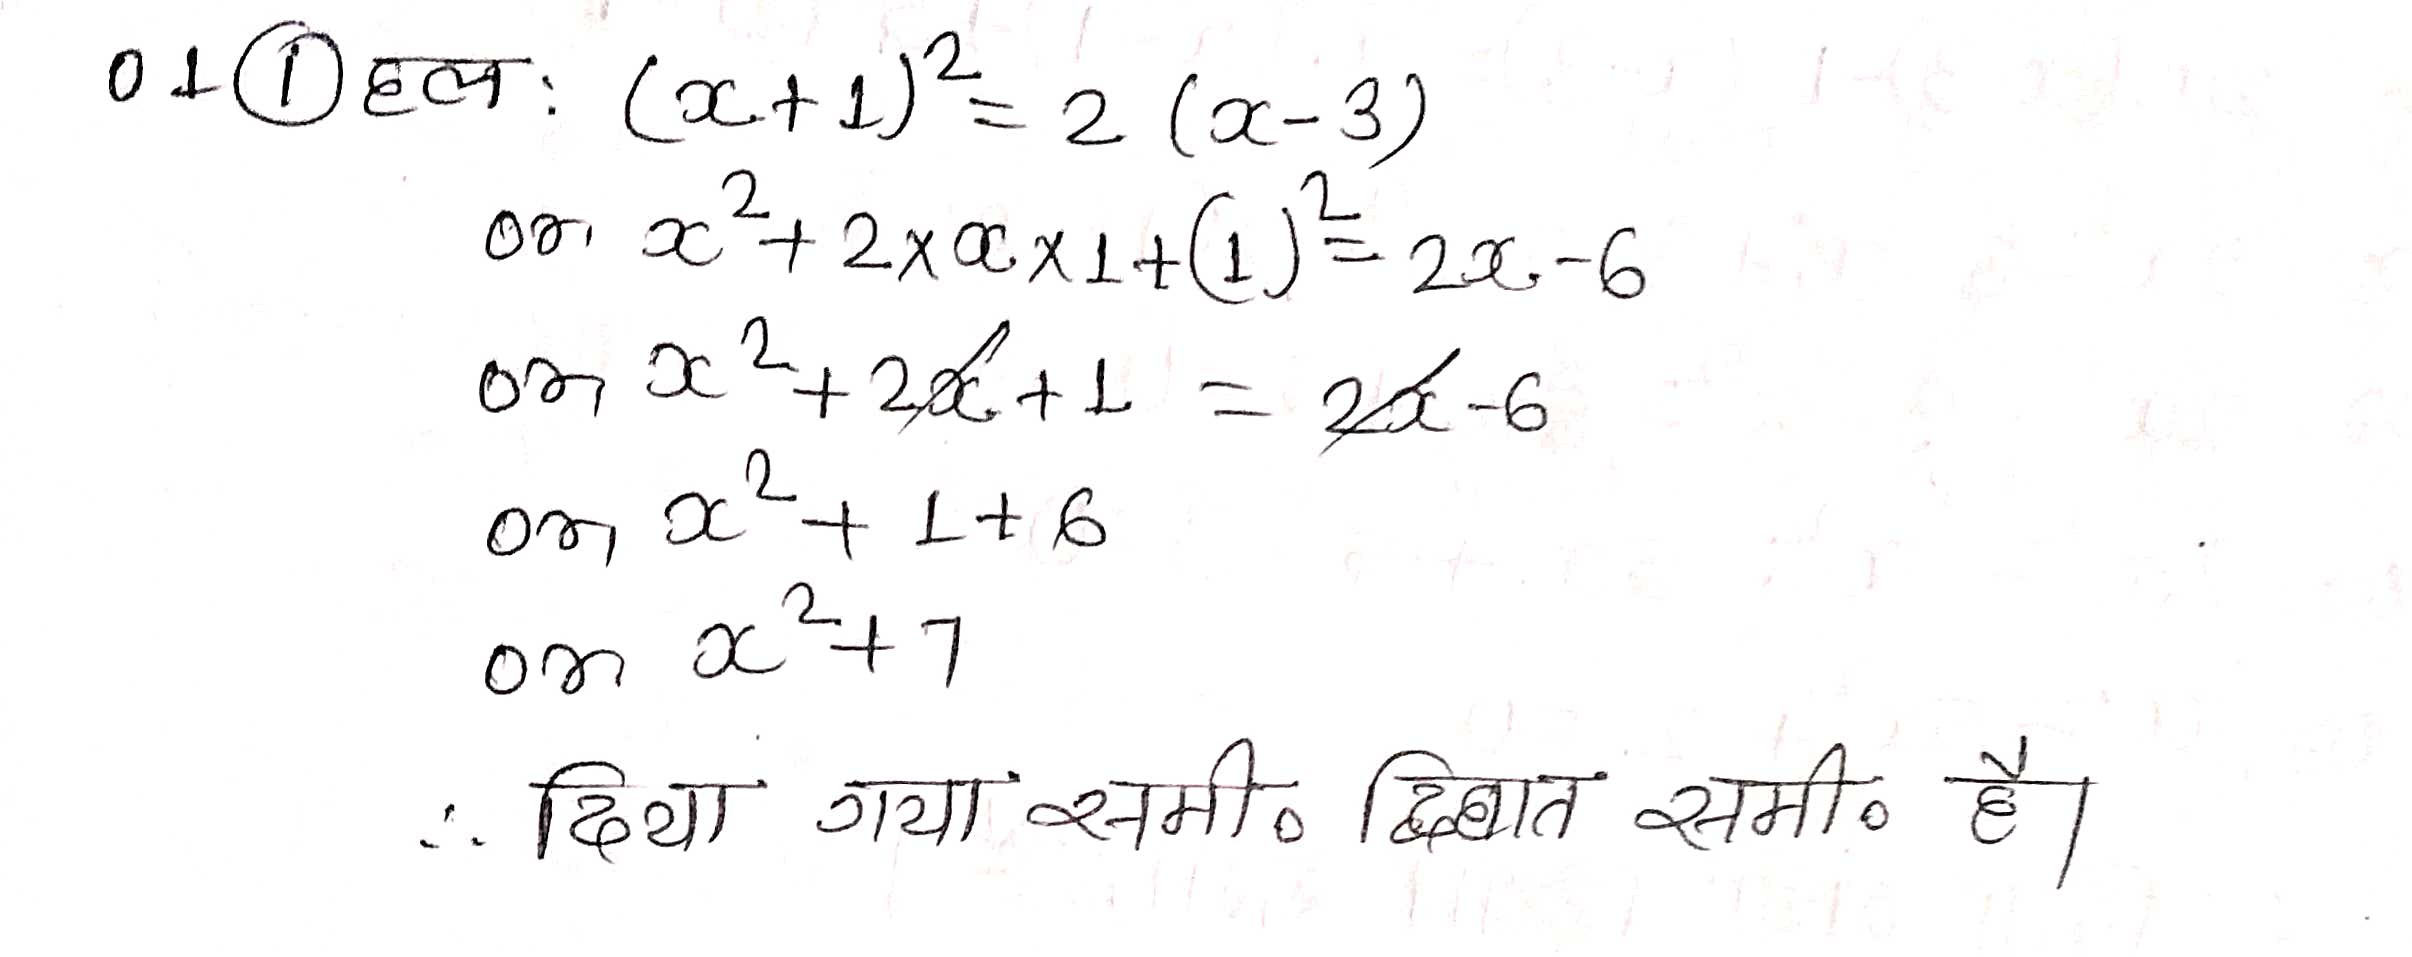 01 ① हल: (x+1)² = 2 (x-3)
or x² + 2×x×1+(1)² = 2x-6
or x² + 2x + 1 = 2x-6
or x² + 1 + 6
or x² + 7
∴ दिया गया समी० द्विघात समी० है।